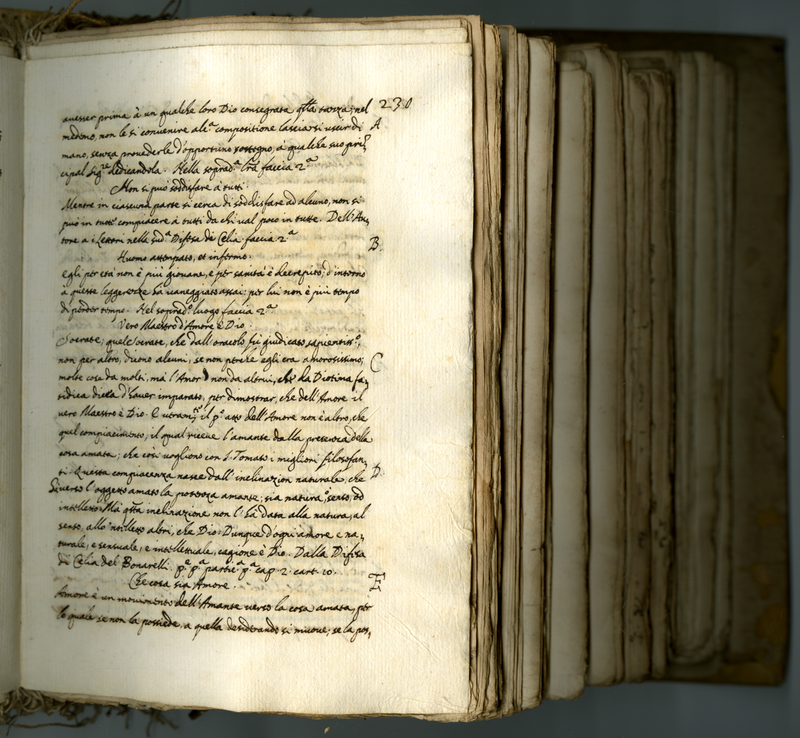 230
auesser prima à un qualche loro Dio consegrata qsta stanza; nel
medemo, non le si conuenire alc.a compositione lasciarsi uscir di
A
mano, senza prouederle d'opportuno sostegno, à qualche suo prin
cipal Sig.re dedicandola. Nella soprad.a lra faccia 2.a
Non si può soddisfare à tutti.
Mentre in ciascuna parte si cerca di soddisfare ad alcuno, non si
può in tutto compiacere à tutti da chi ual poco in tutte. Dell'Au,
tore a i Lettori nella sud.a Difesa di Celia faccia 2.a
B.
Huomo attempato, et infermo.
egli per età non è più giouane, e per sanità è decrepito; d'intorno
a queste leggerezze hà uaneggiato assai; per lui non è più tempo
di perder tempo. Nel soprad.o luogo faccia 2.a
Vero Maestro d'Amore è Dio.
Socrate, quel Socrate, che dall'oracolo fù giudicato sapientiss.o,
non per altro, dicono alcuni, se non perche egli era amorosissimo;
C
molte cose da molti, mà l'Amor non da altrui, che da Diotima fa,
tidica dicea d'hauer imparato, per dimostrar, che dell'Amore il
uero Maestro è Dio. E il p.o atto dell'Amore non è altro, che
quel compiacimento, il qual riceue l'amante dalla presenza della
cosa amata; che così uogliono con S. Tomaso i migliori filosofan,
ti. Questa compiacenza nasce dall'inclinazion naturale, che
D.
uerso l'oggetto amato la potenza amante; sia natura, senso, od
intelletto. Mà qsta inclinazione non l'hà data alla natura, al
senso, allo 'ntelletto altri, che Dio. Dunque d'ogni amore e na,
turale, e sensuale, e intellettuale, cagione è Dio. Dalla Difesa
di Celia del Bonarelli. p.e p.a partic.a p.a cap. 2. cart. 10.
E
Che cosa sia Amore.
Amore è un mouimento dell'Amante uerso la cosa amata, per
lo quale se non la possiede, a quella desiderando si muoue; se la pos,